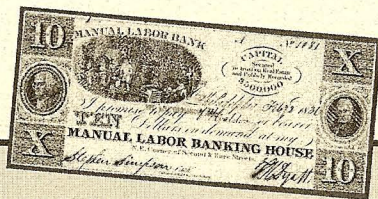 10
MANUAL LABOR BANK
A
No 1081
X
CAPITAL
Secured
in trust on Real Estate
and Publicly Recorded
$500,000
I promise to pay
or bearer
TEN Dollars on demand at my
MANUAL LABOR BANKING HOUSE
N.E. Corner of Second & Race Streets
X
Stephen Simpson
TW Dyott
10